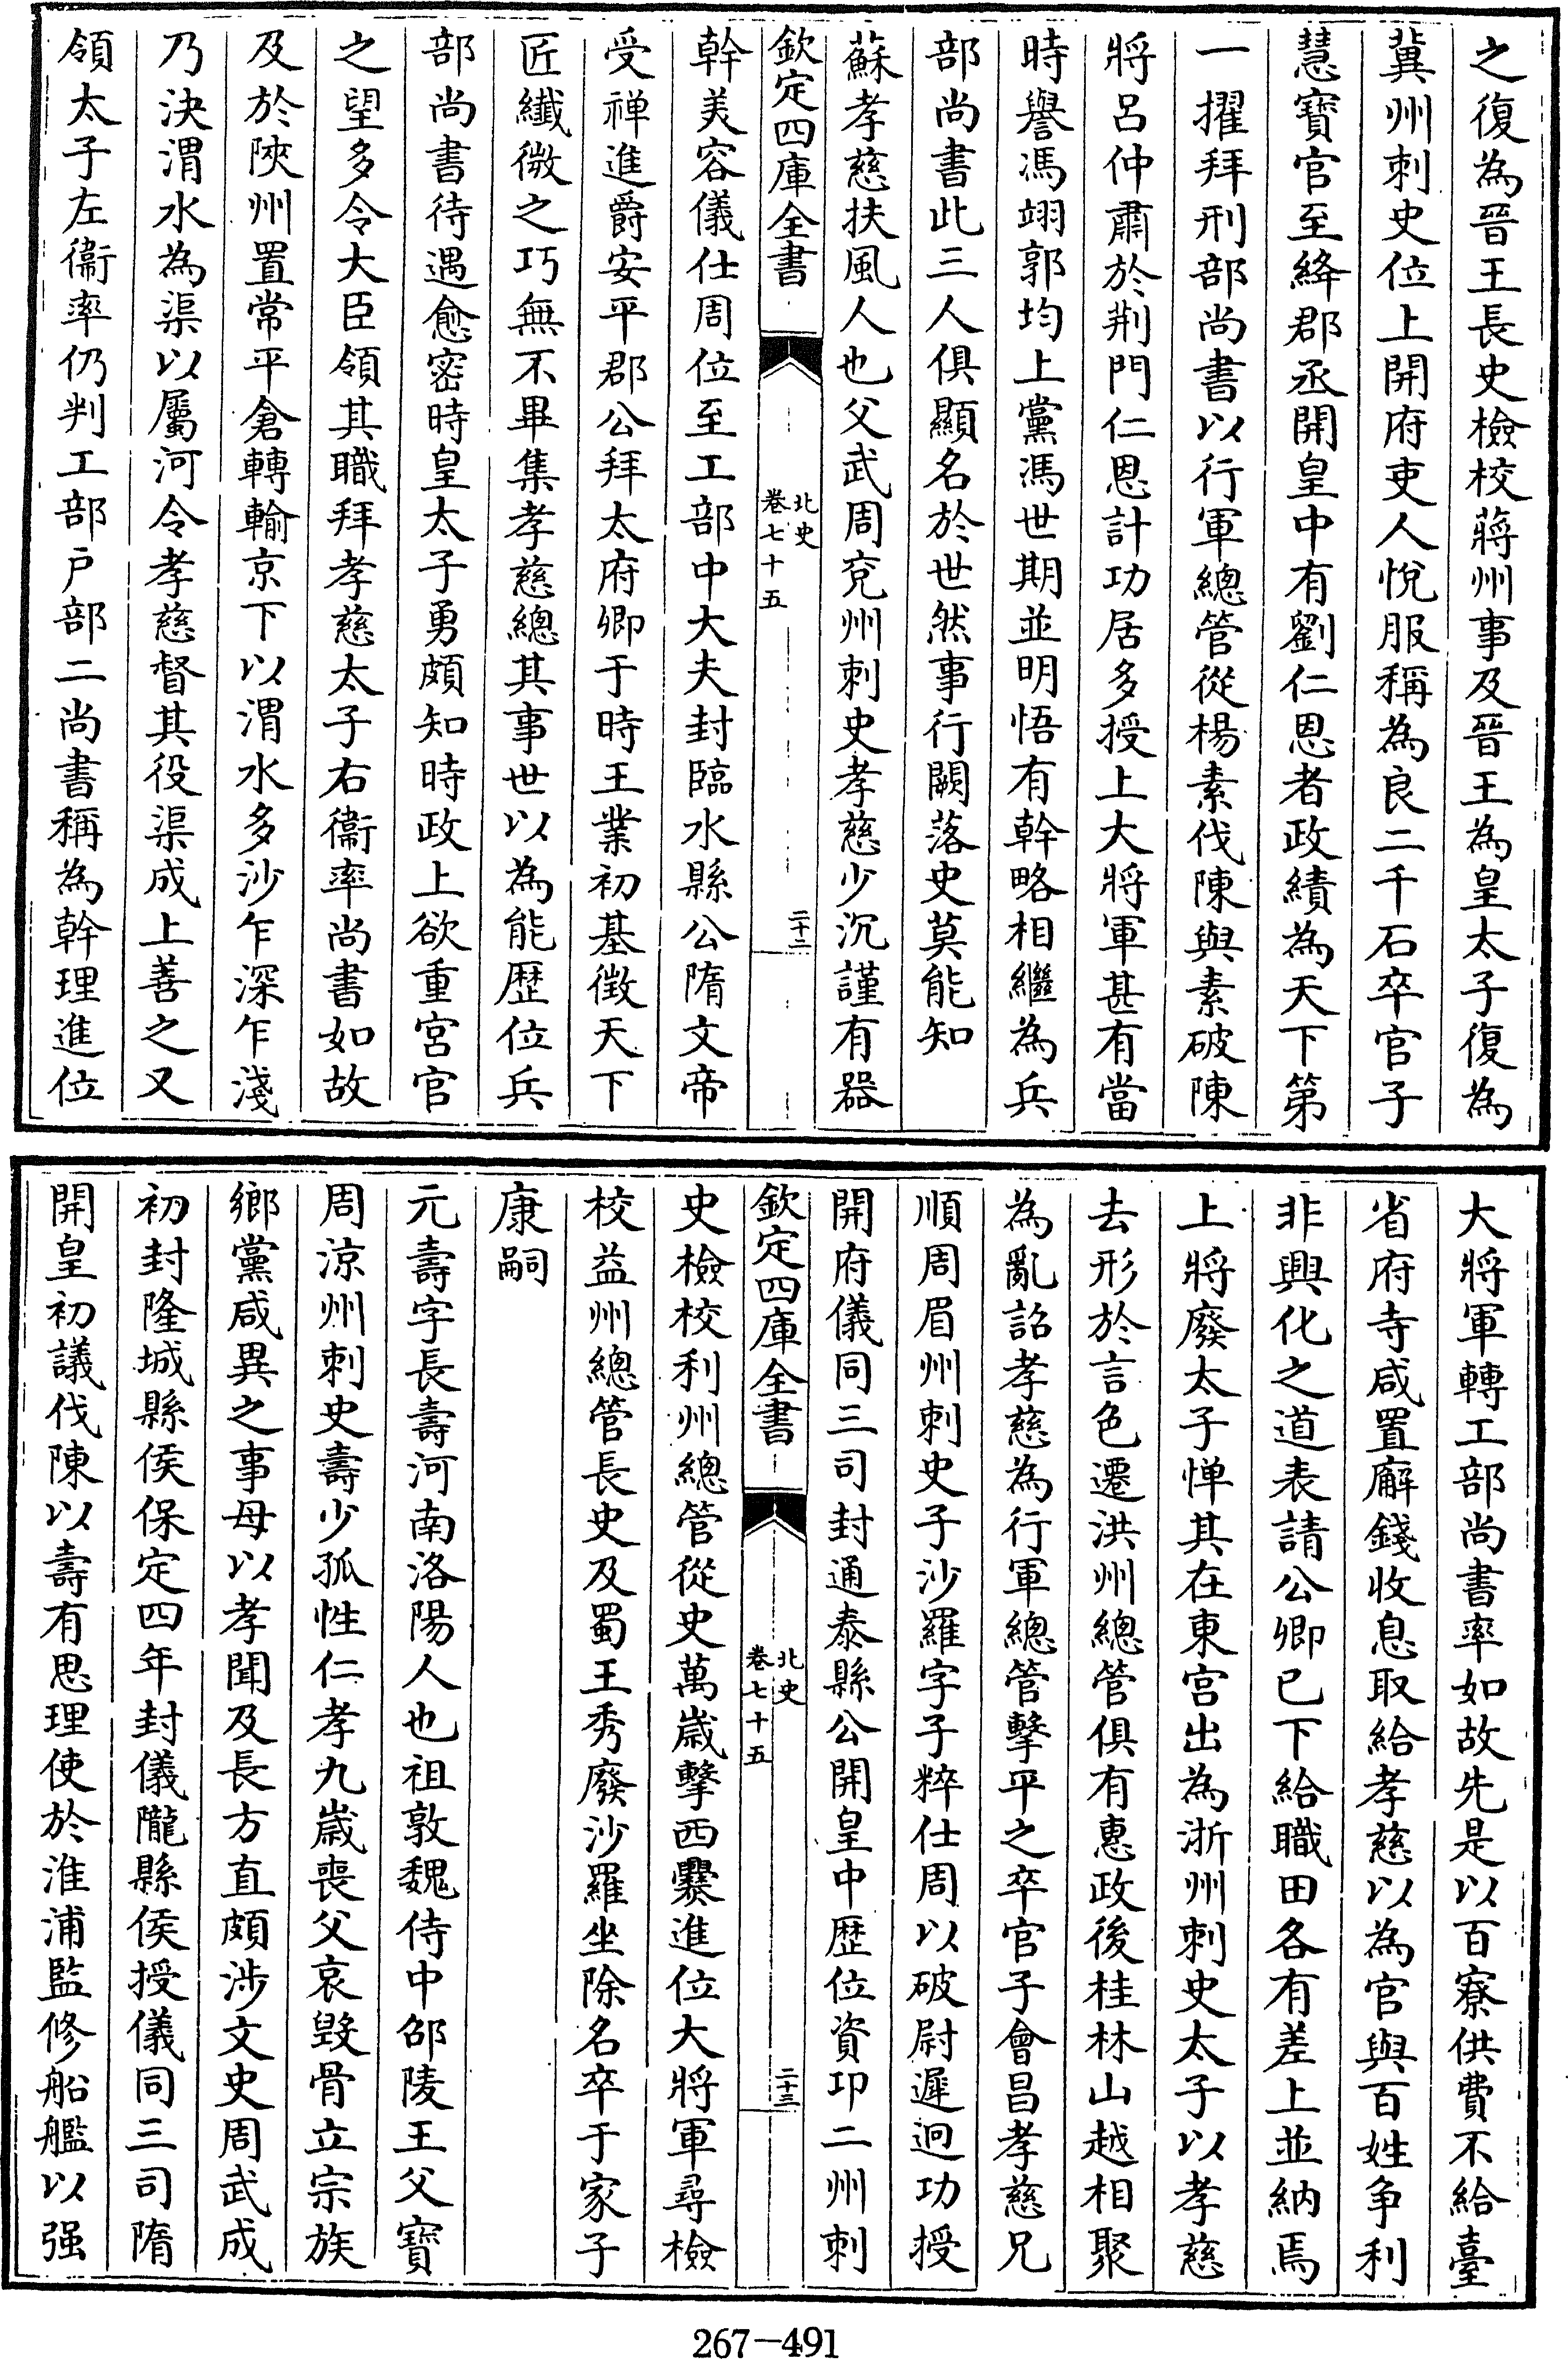 之復為晉王長史檢校蔣州事及晉王為皇太子復為
冀州刺史位上開府吏人悅服稱為良二千石卒官子
慧寶官至絳郡丞開皇中有劉仁恩者政績為天下第
一擢拜刑部尚書以行軍總管從楊素伐陳與素破陳
將呂仲肅於荆門仁恩計功居多授上大將軍甚有當
時譽馮翊郭均上黨馮世期並明悟有幹略相繼為兵
部尚書此三人俱顯名於世然事行闕落史莫能知
蘇孝慈扶風人也父武周兗州刺史孝慈少沉謹有器
欽定四庫全書
北史
卷七十五
二十二
幹美容儀仕周位至工部中大夫封臨水縣公隋文帝
受禅進爵安平郡公拜太府卿于時王業初基徵天下
匠纖微之巧無不畢集孝慈總其事世以為能歷位兵
部尚書待遇愈密時皇太子勇頗知時政上欲重宮官
之望多令大臣領其職拜孝慈太子右衞率尚書如故
及於陝州置常平倉轉輸京下以渭水多沙乍深乍淺
乃決渭水為渠以屬河令孝慈督其役渠成上善之又
領太子左衞率仍判工部戶部二尚書稱為幹理進位
大將軍轉工部尚書率如故先是以百寮供費不給臺
省府寺咸置廨錢收息取給孝慈以為官與百姓争利
非興化之道表請公卿已下給職田各有差上並納焉
上將廢太子惮其在東宮出為浙州刺史太子以孝慈
去形於言色遷洪州總管俱有惠政後桂林山越相聚
為亂詔孝慈為行軍總管擊平之卒官子會昌孝慈兄
順周眉州刺史子沙羅字子粹仕周以破尉遲迥功授
開府儀同三司封通泰縣公開皇中歷位資卭二州刺
欽定四庫全書
北史
卷七十五
二十三
史檢校利州總管從史萬歲擊西爨進位大將軍尋檢
校益州總管長史及蜀王秀廢沙羅坐除名卒于家子
康嗣
元壽字長壽河南洛陽人也祖敦魏侍中邵陵王父寶
周涼州刺史壽少孤性仁孝九歲喪父哀毀骨立宗族
鄉黨咸異之事母以孝聞及長方直頗涉文史周武成
初封隆城縣侯保定四年封儀隴縣侯授儀同三司隋
開皇初議伐陳以壽有思理使於淮浦監修船艦以强
267-491